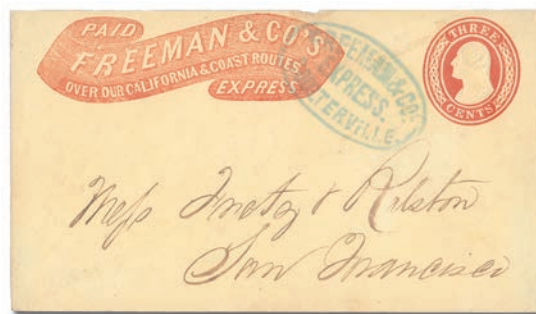 PAID
FREEMAN & CO'S
OVER OUR CALIFORNIA & COAST ROUTES
EXPRESS
FREEMAN & CO'S
EXPRESS.
THREE
CENTS
Mess Fretz & Ralston
San Francisco